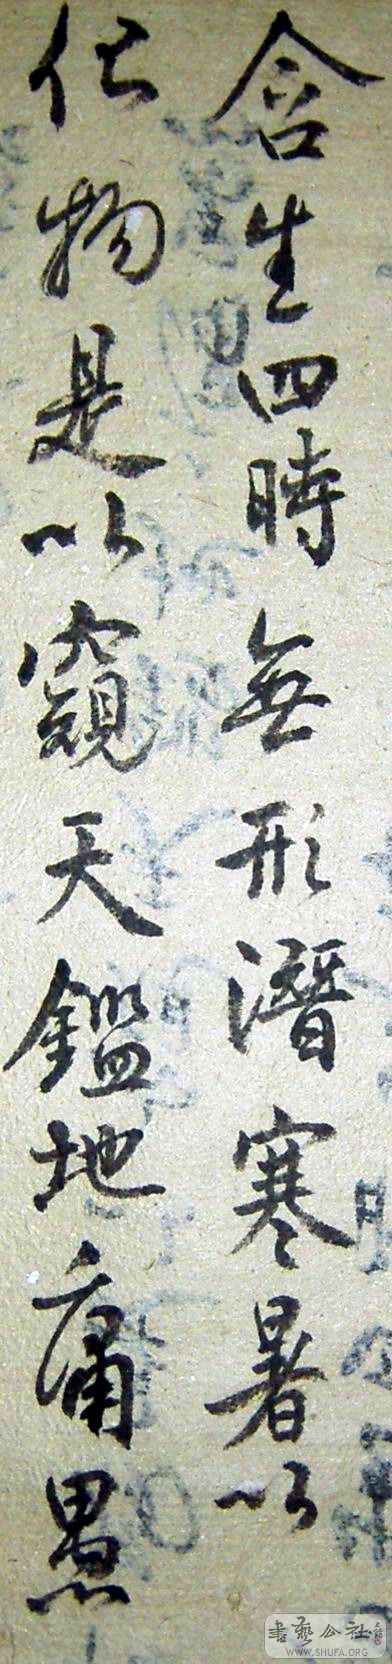 含生四時無形潛寒暑以
化物是以窺天鑑地庸愚
書藝公社
WWW.SHUFA.ORG